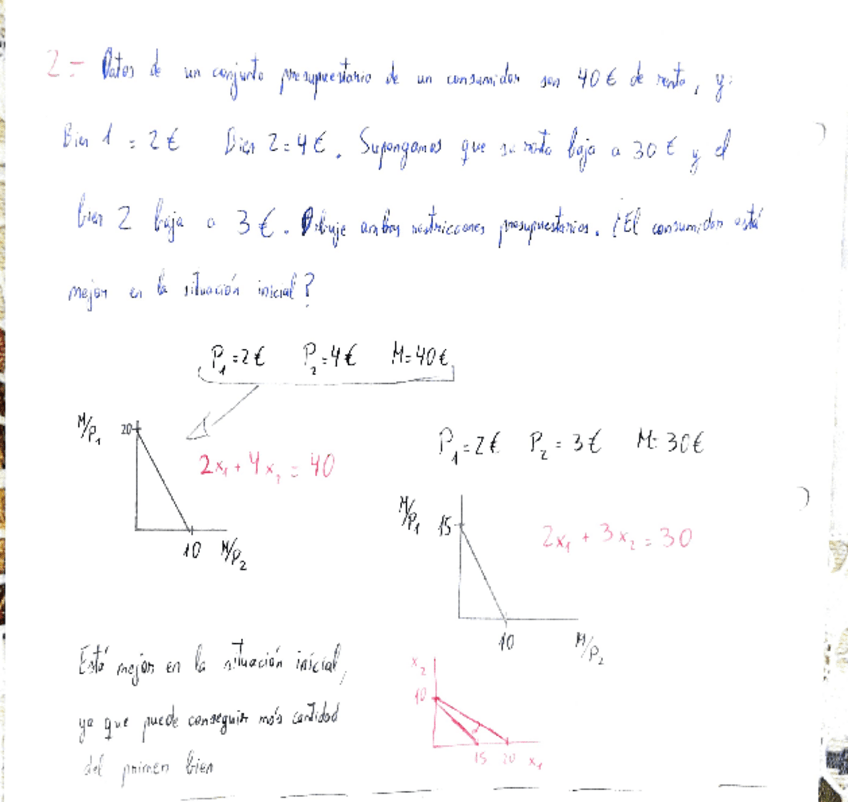 2.- Datos de un conjunto presupuestario de un consumidor son 40€ de renta, y:
Bien 1 = 2€ Bien 2 = 4€. Supongamos que su renta baja a 30€ y el
bien 2 baja a 3€. Dibuje ambas restricciones presupuestarias. ¿El consumidor está
mejor en la situación inicial?
P₁=2€ P₂=4€ M=40€
M/P₁ 20
2x₁ + 4x₂ = 40
10 M/P₂
P₁=2€ P₂=3€ M=30€
M/P₁ 15
2x₁ + 3x₂ = 30
10 M/P₂
Está mejor en la situación inicial,
ya que puede conseguir más cantidad
del primer bien
x₂
10
15 20 x₁